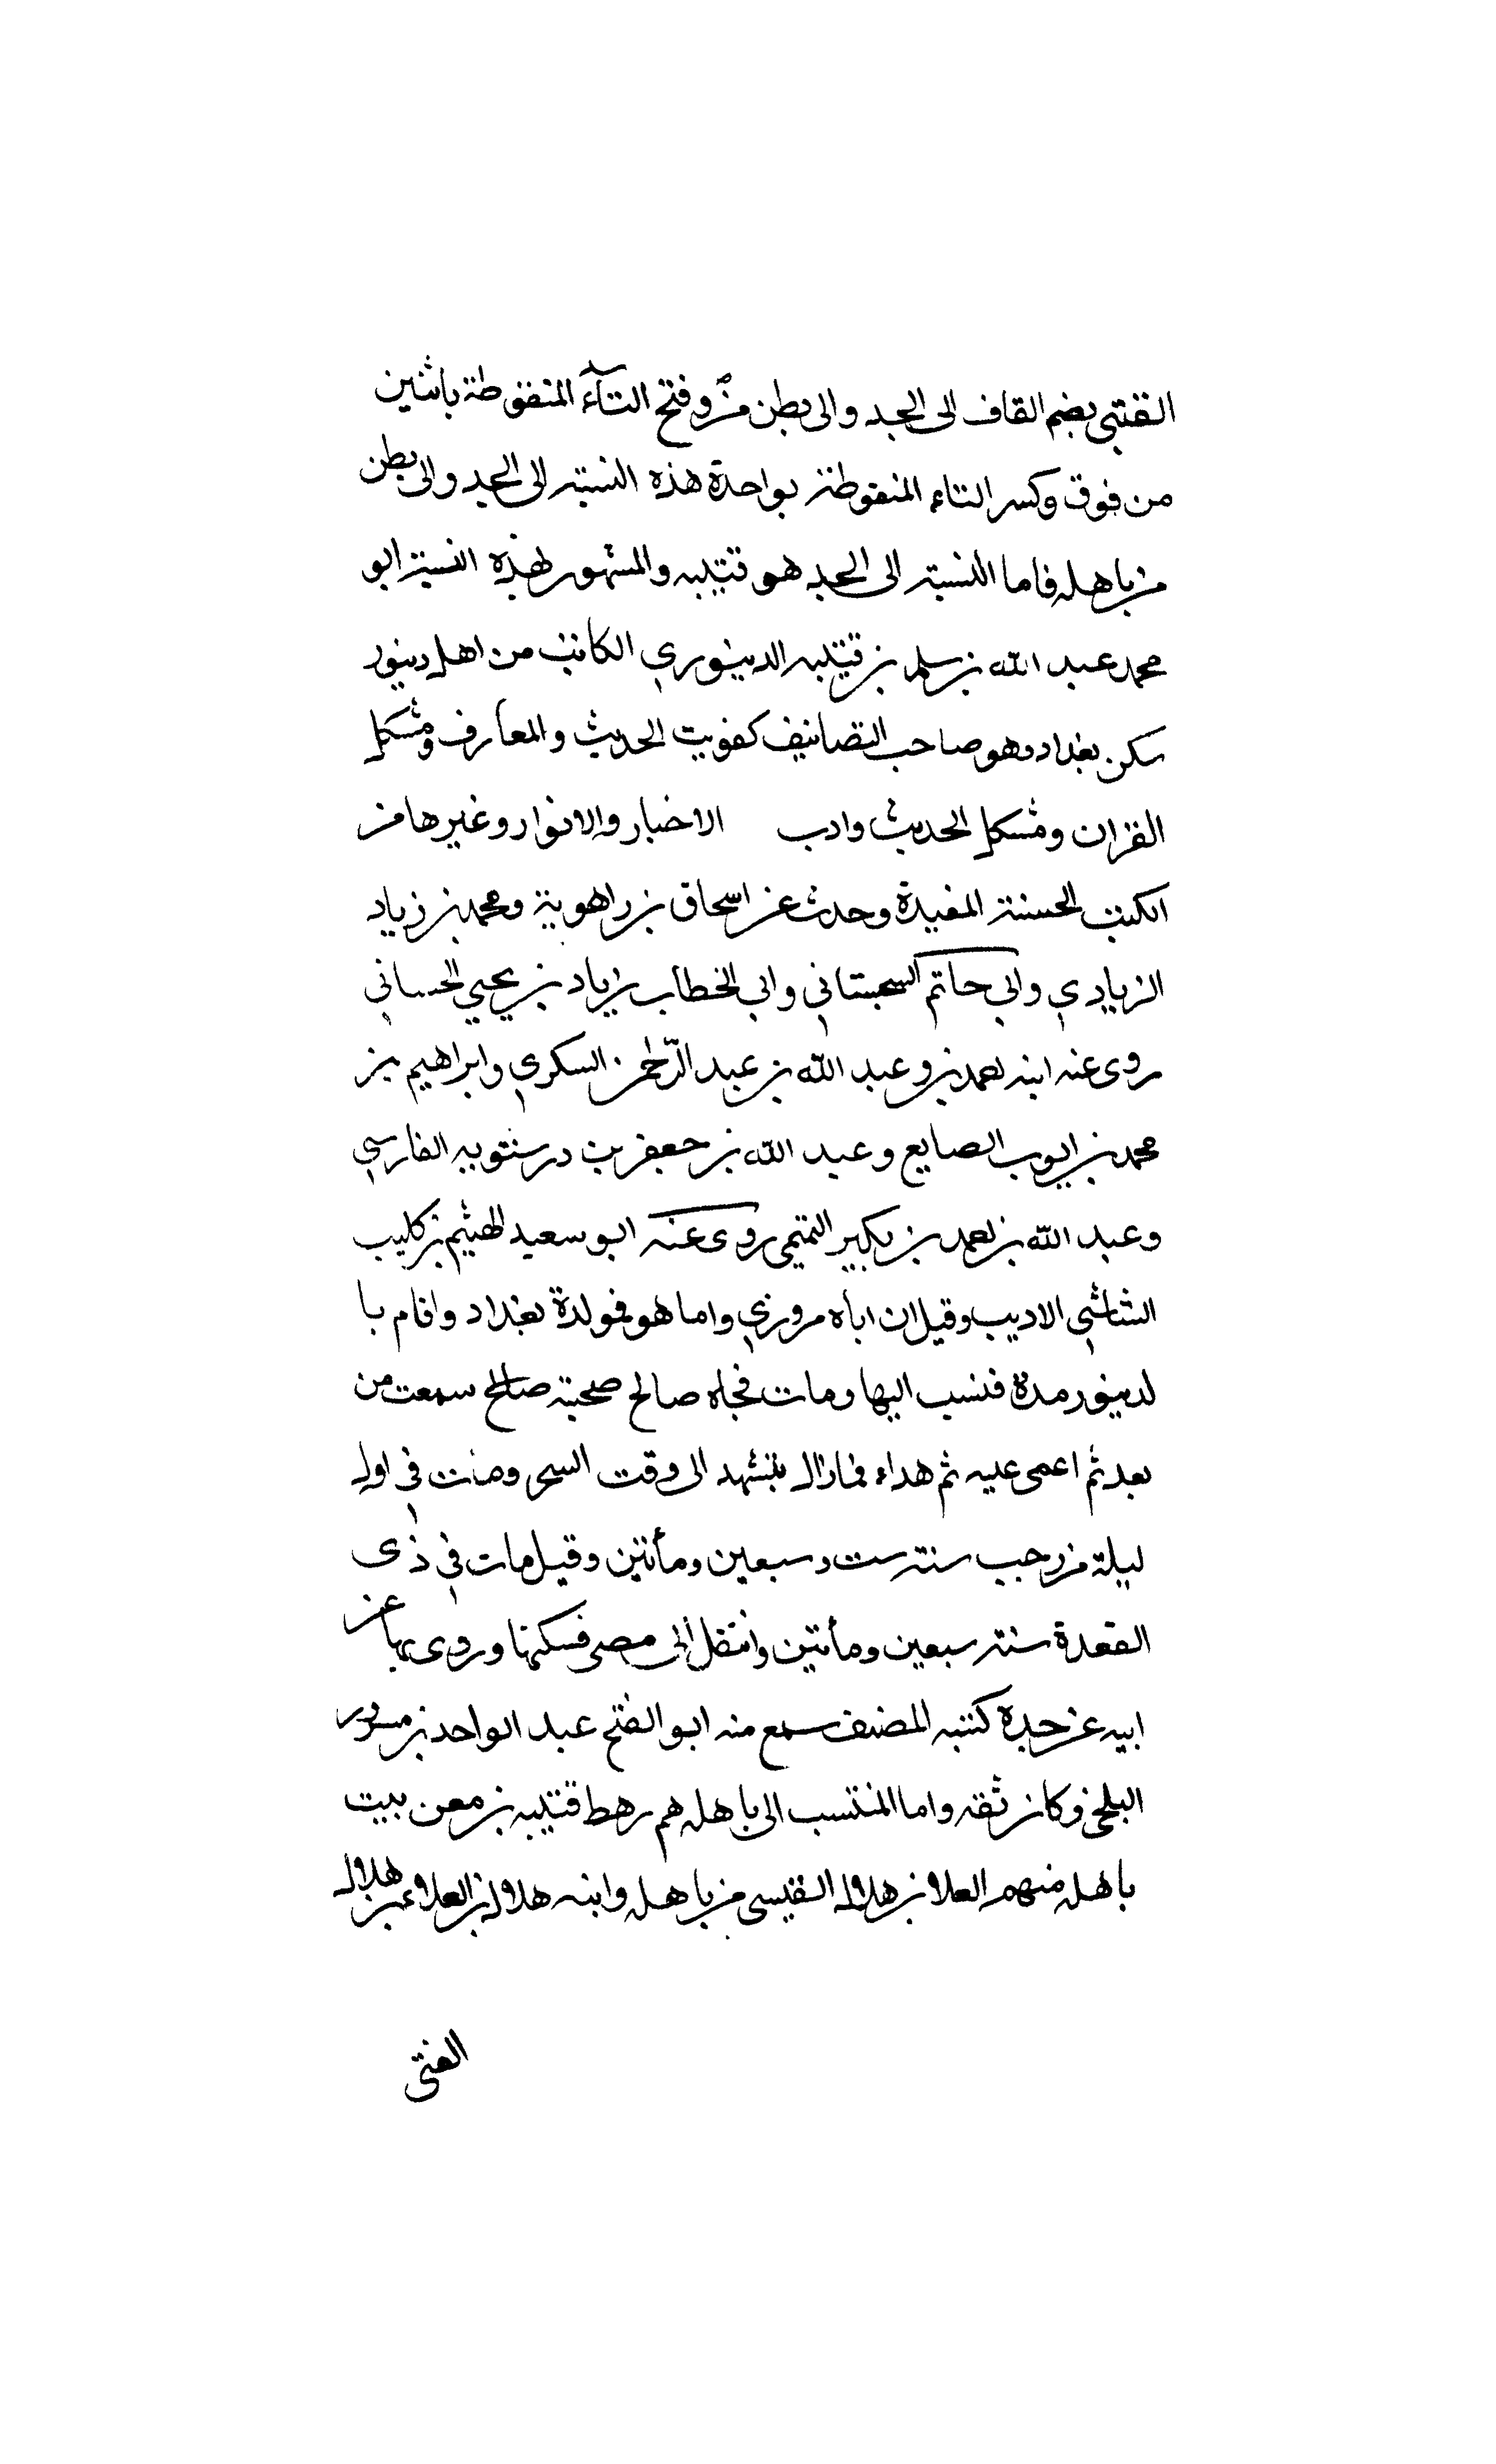 القتبي بضم القاف الى الجد والى بطن من وفتح التآء المنقوطة باثنين
من فوق وكسر التاء المنقوطة بواحدة هذه النسبة الى الجد والى بطن
من باهله فاما النسبة الى الجد هو قتيبه والمشهور لهذه النسبة ابو
محمد عبد الله بن سلم بن قتيبه الدينوري الكاتب من اهل دينور
سكن بغداد وهو صاحب التصانيف كغريب الحديث والمعارف ومشكل
القران ومشكل الحديث وادب الاخبار والانوار وغيرها من
الكتب الحسنة المفيدة وحدث عن اسحاق بن راهوية ومحمد بن زياد
الزيادي وابي حاتم السجستاني وابي الخطاب زياد بن يحيي الحساني
روى عنه ابنه احمد بن وعبد الله بن عبد الرحمن السكري وابراهيم بن
محمد بن ايوب الصايع وعبد الله بن جعفر بن درستويه الفارسي
وعبد الله بن احمد بن بكير التميمي روى عنه ابو سعيد الهيثم بن كليب
الشاشي الاديب وقيل ان اباه مروزي واما هو فمولدة بغداد واقام با
لدينور مدة فنسب اليها ومات فجاه صالح صحبة صالح سمعت من
بعد ثم اعمى عليه ثم هداء فمازال يتشهد الى وقت السحر ومات في اول
ليلة من رجب سنة ست وسبعين ومأتين وقيل مات في ذى
القعدة سنة سبعين ومأتين وانتقل الى مصر فسكنها وروى بها عن
ابيه عن جدة كتبه المصنف سمع منه ابو الفتح عبد الواحد بن مسرور
البلخي وكان ثقه واما المنتسب الى باهله هم رهط قتيبه بن معن بيت
باهله منهم العلا بن هلال القيسى من باهله وابنه هلال بن العلاء بن هلال
القتى